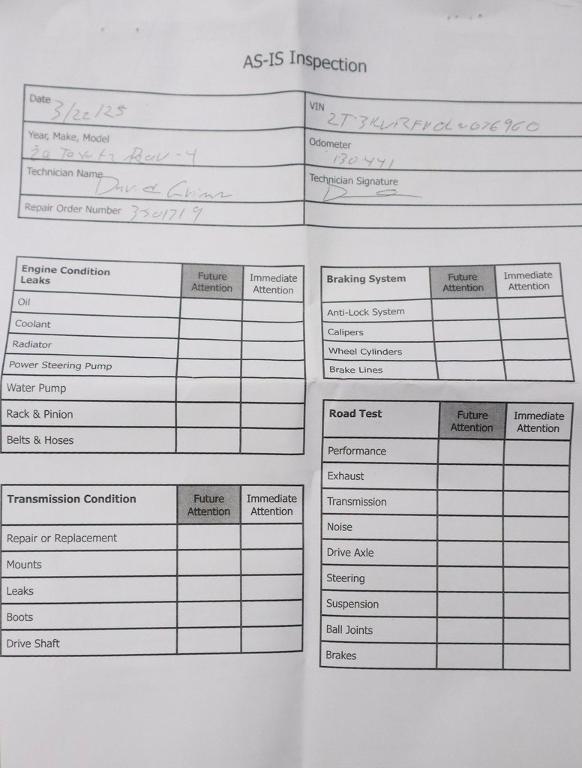 AS-IS Inspection
Date 3/22/25
VIN
Year, Make, Model 20 Toyota Rav-4
Odometer 130441
Technician Name David
Technician Signature
Repair Order Number 3501719
Engine Condition Leaks Future Attention Immediate Attention
Oil
Coolant
Radiator
Power Steering Pump
Water Pump
Rack & Pinion
Belts & Hoses
Transmission Condition Future Attention Immediate Attention
Repair or Replacement
Mounts
Leaks
Boots
Drive Shaft
Braking System Future Attention Immediate Attention
Anti-Lock System
Calipers
Wheel Cylinders
Brake Lines
Road Test Future Attention Immediate Attention
Performance
Exhaust
Transmission
Noise
Drive Axle
Steering
Suspension
Ball Joints
Brakes